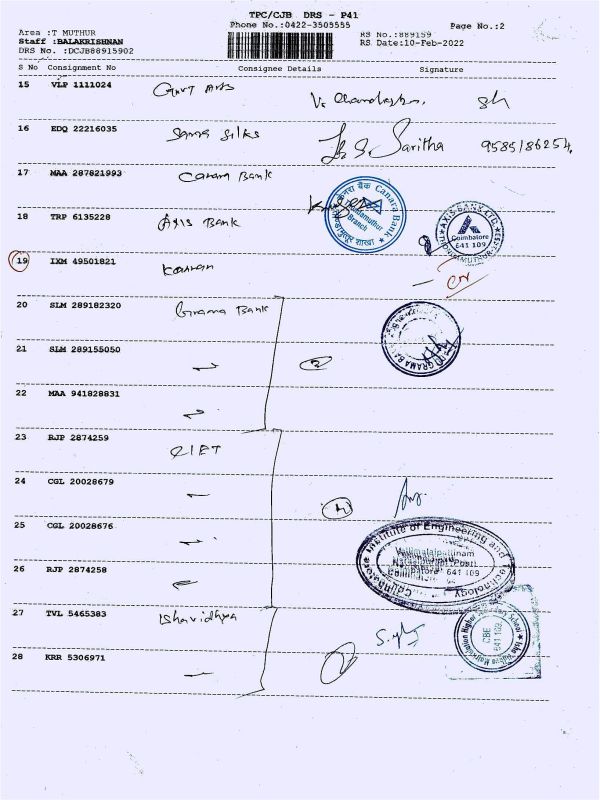 TPC/CJB DRS - P41
Phone No.:0422-3509555
Page No.:2
Area :T MUTHUR
Staff :BALAKRISHNAN
DRS No. :DCJB88915902
RS No.:889159
RS Date:10-Feb-2022
S No Consignment No Consignee Details Signature
15 VLP 1111024 Govt Arts
16 EDQ 22216035 Sama Silks Saritha
17 MAA 287821993 Canara Bank
केनरा बैंक Canara Bank
Branch
शाखा
18 TRP 6135228 Axis Bank
AXIS BANK LTD
Coimbatore
641 109
19 IXM 49501821 Kannan
20 SLM 289182320 Grama Bank
GRAMA BA
21 SLM 289155050 3
22 MAA 941828831
23 RJP 2874259 CIET
24 CGL 20028679 4
25 CGL 20028676
Coimbatore Institute of Engineering and Technology
Vellimalaipattinam
Narasipuram Post
Coimbatore 641 109
26 RJP 2874258
27 TVL 5465383 Ishavidhya
Isha Vidhya Matriculation Higher Secondary School
CBE
641 109
28 KRR 5306971 2